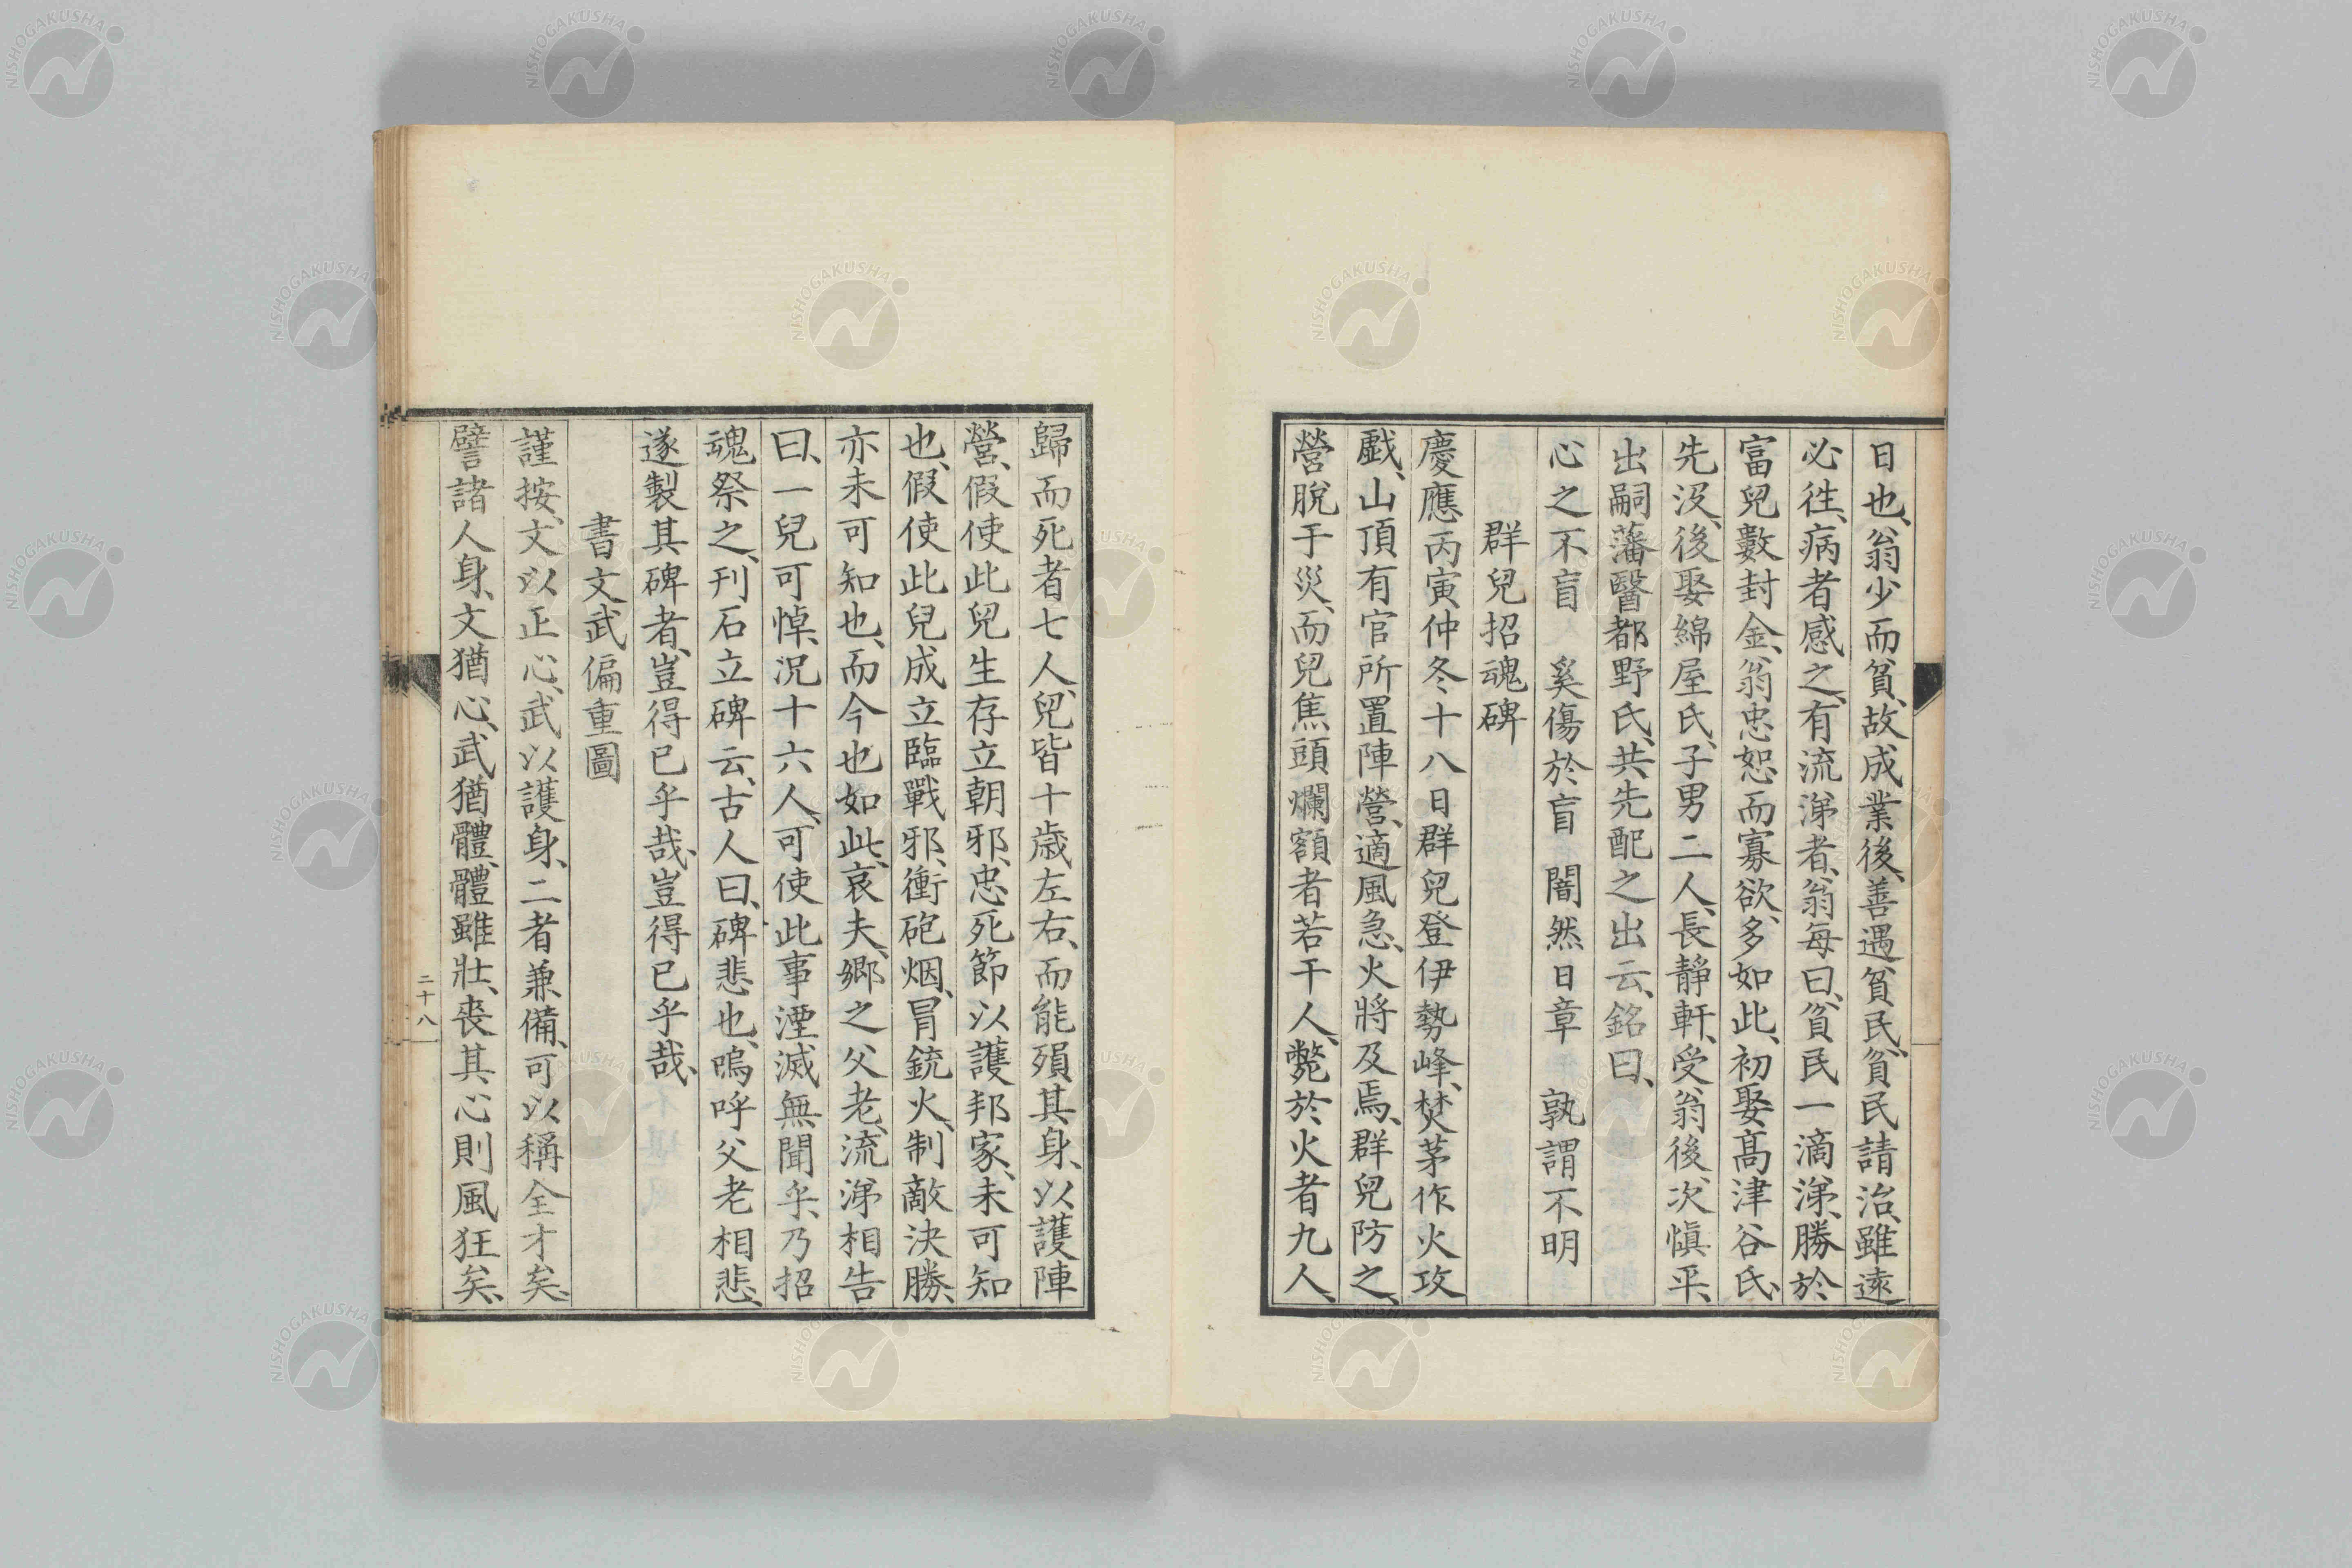 日也、翁少而貧、故成業後、善遇貧民、貧民請治、雖遠
必徃、病者感之、有流涕者、翁每曰、貧民一滴涕、勝於
富兒數封金、翁忠恕而寡欲、多如此、初娶髙津谷氏、
先沒、後娶綿屋氏、子男二人、長靜軒、受翁後、次愼平、
出嗣藩醫都野氏、共先配之出云、銘曰、
心之不盲　奚傷於盲　闇然日章　孰謂不明
群兒招魂碑
慶應丙寅仲冬十八日群兒登伊勢峰、焚茅作火攻
戲、山頂有官所置陣營、適風急、火將及焉、群兒防之、
營脫于災、而兒焦頭爛額者若干人、斃於火者九人、
歸而死者七人、兒皆十歳左右、而能殞其身、以護陣
營、假使此兒生存立朝邪、忠死節以護邦家、未可知
也、假使此兒成立臨戰邪、衝砲烟、冒銃火、制敵決勝、
亦未可知也、而今也如此、哀夫、鄉之父老、流涕相告
曰、一兒可悼、況十六人、可使此事湮滅無聞乎、乃招
魂祭之、刊石立碑云、古人曰、碑悲也、嗚呼父老相悲、
遂製其碑者、豈得已乎哉、豈得已乎哉、
書文武偏重圖
謹按、文以正心、武以護身、二者兼備、可以稱全才矣、
譬諸人身、文猶心、武猶體、體雖壯、喪其心則風狂矣、
二十八
NISHOGAKUSHA